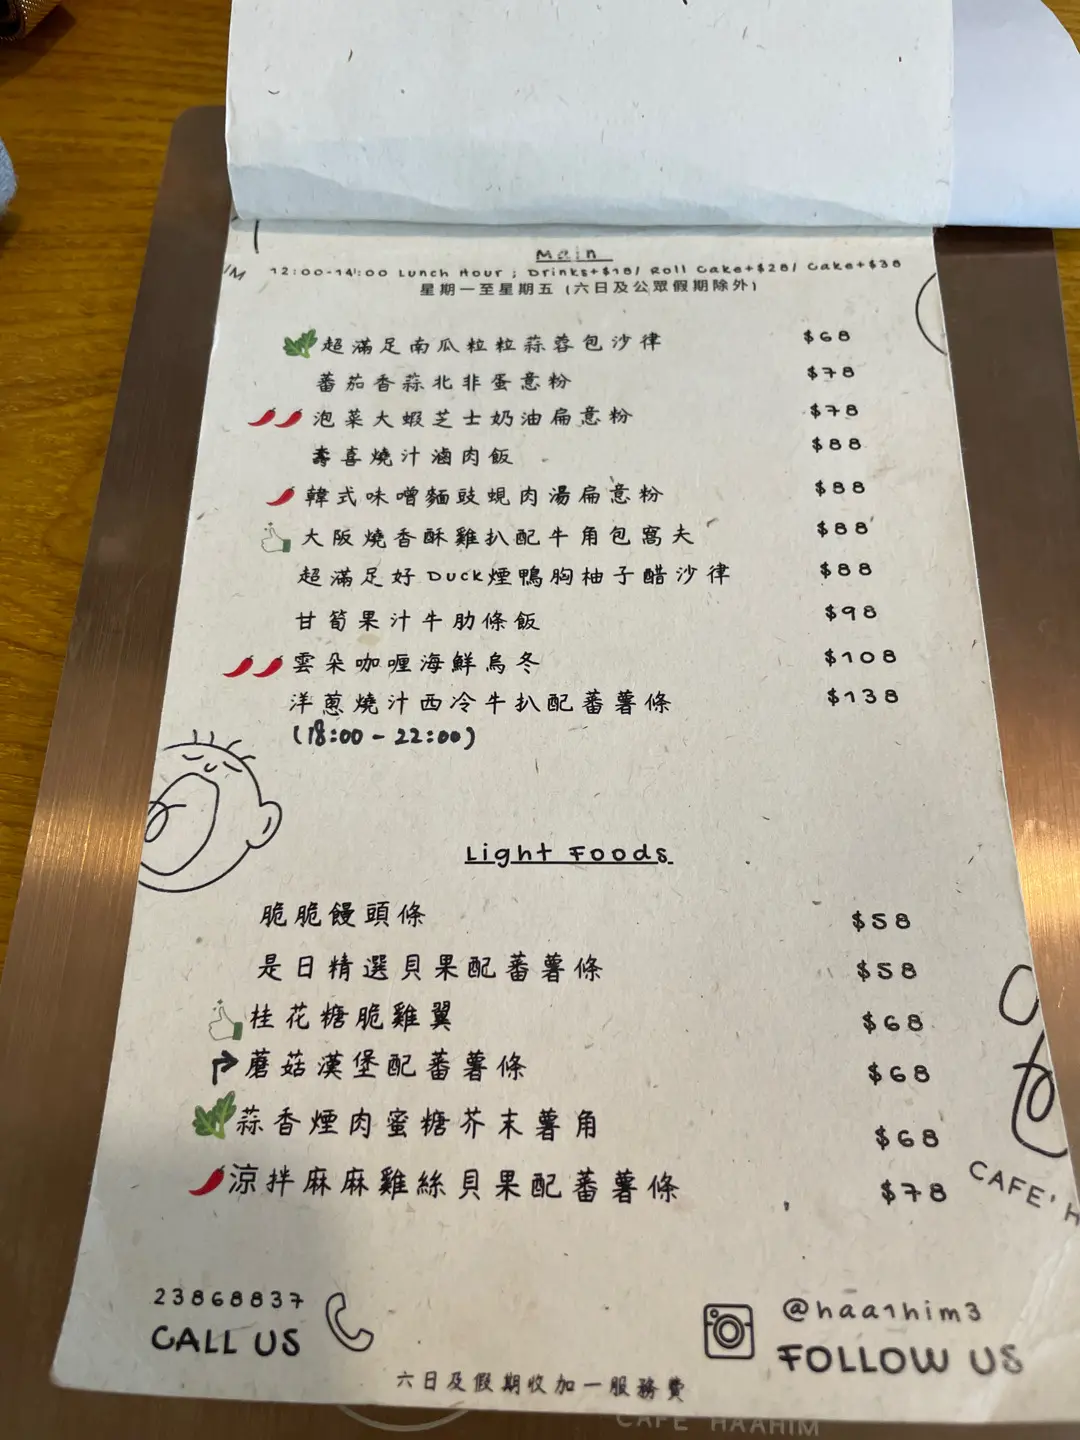 Main
12:00-14:00 Lunch Hour ; Drinks+$18/ Roll Cake+$28/ Cake+$38
星期一至星期五 (六日及公眾假期除外)
超滿足南瓜粒粒蒜蓉包沙律 $68
蕃茄香蒜北非蛋意粉 $78
泡菜大蝦芝士奶油扁意粉 $78
壽喜燒汁滷肉飯 $88
韓式味噌麵豉蜆肉湯扁意粉 $88
大阪燒香酥雞扒配牛角包窩夫 $88
超滿足好Duck煙鴨胸柚子醋沙律 $88
甘筍果汁牛肋條飯 $98
雲朵咖喱海鮮烏冬 $108
洋蔥燒汁西冷牛扒配蕃薯條 $138
(18:00-22:00)
Light Foods
脆脆饅頭條 $58
是日精選貝果配蕃薯條 $58
桂花糖脆雞翼 $68
蘑菇漢堡配蕃薯條 $68
蒜香煙肉蜜糖芥末薯角 $68
涼拌麻麻雞絲貝果配蕃薯條 $78
CAFE' H
23868837
CALL US
@haa1him3
FOLLOW US
六日及假期收加一服務費
CAFE HAAHIM